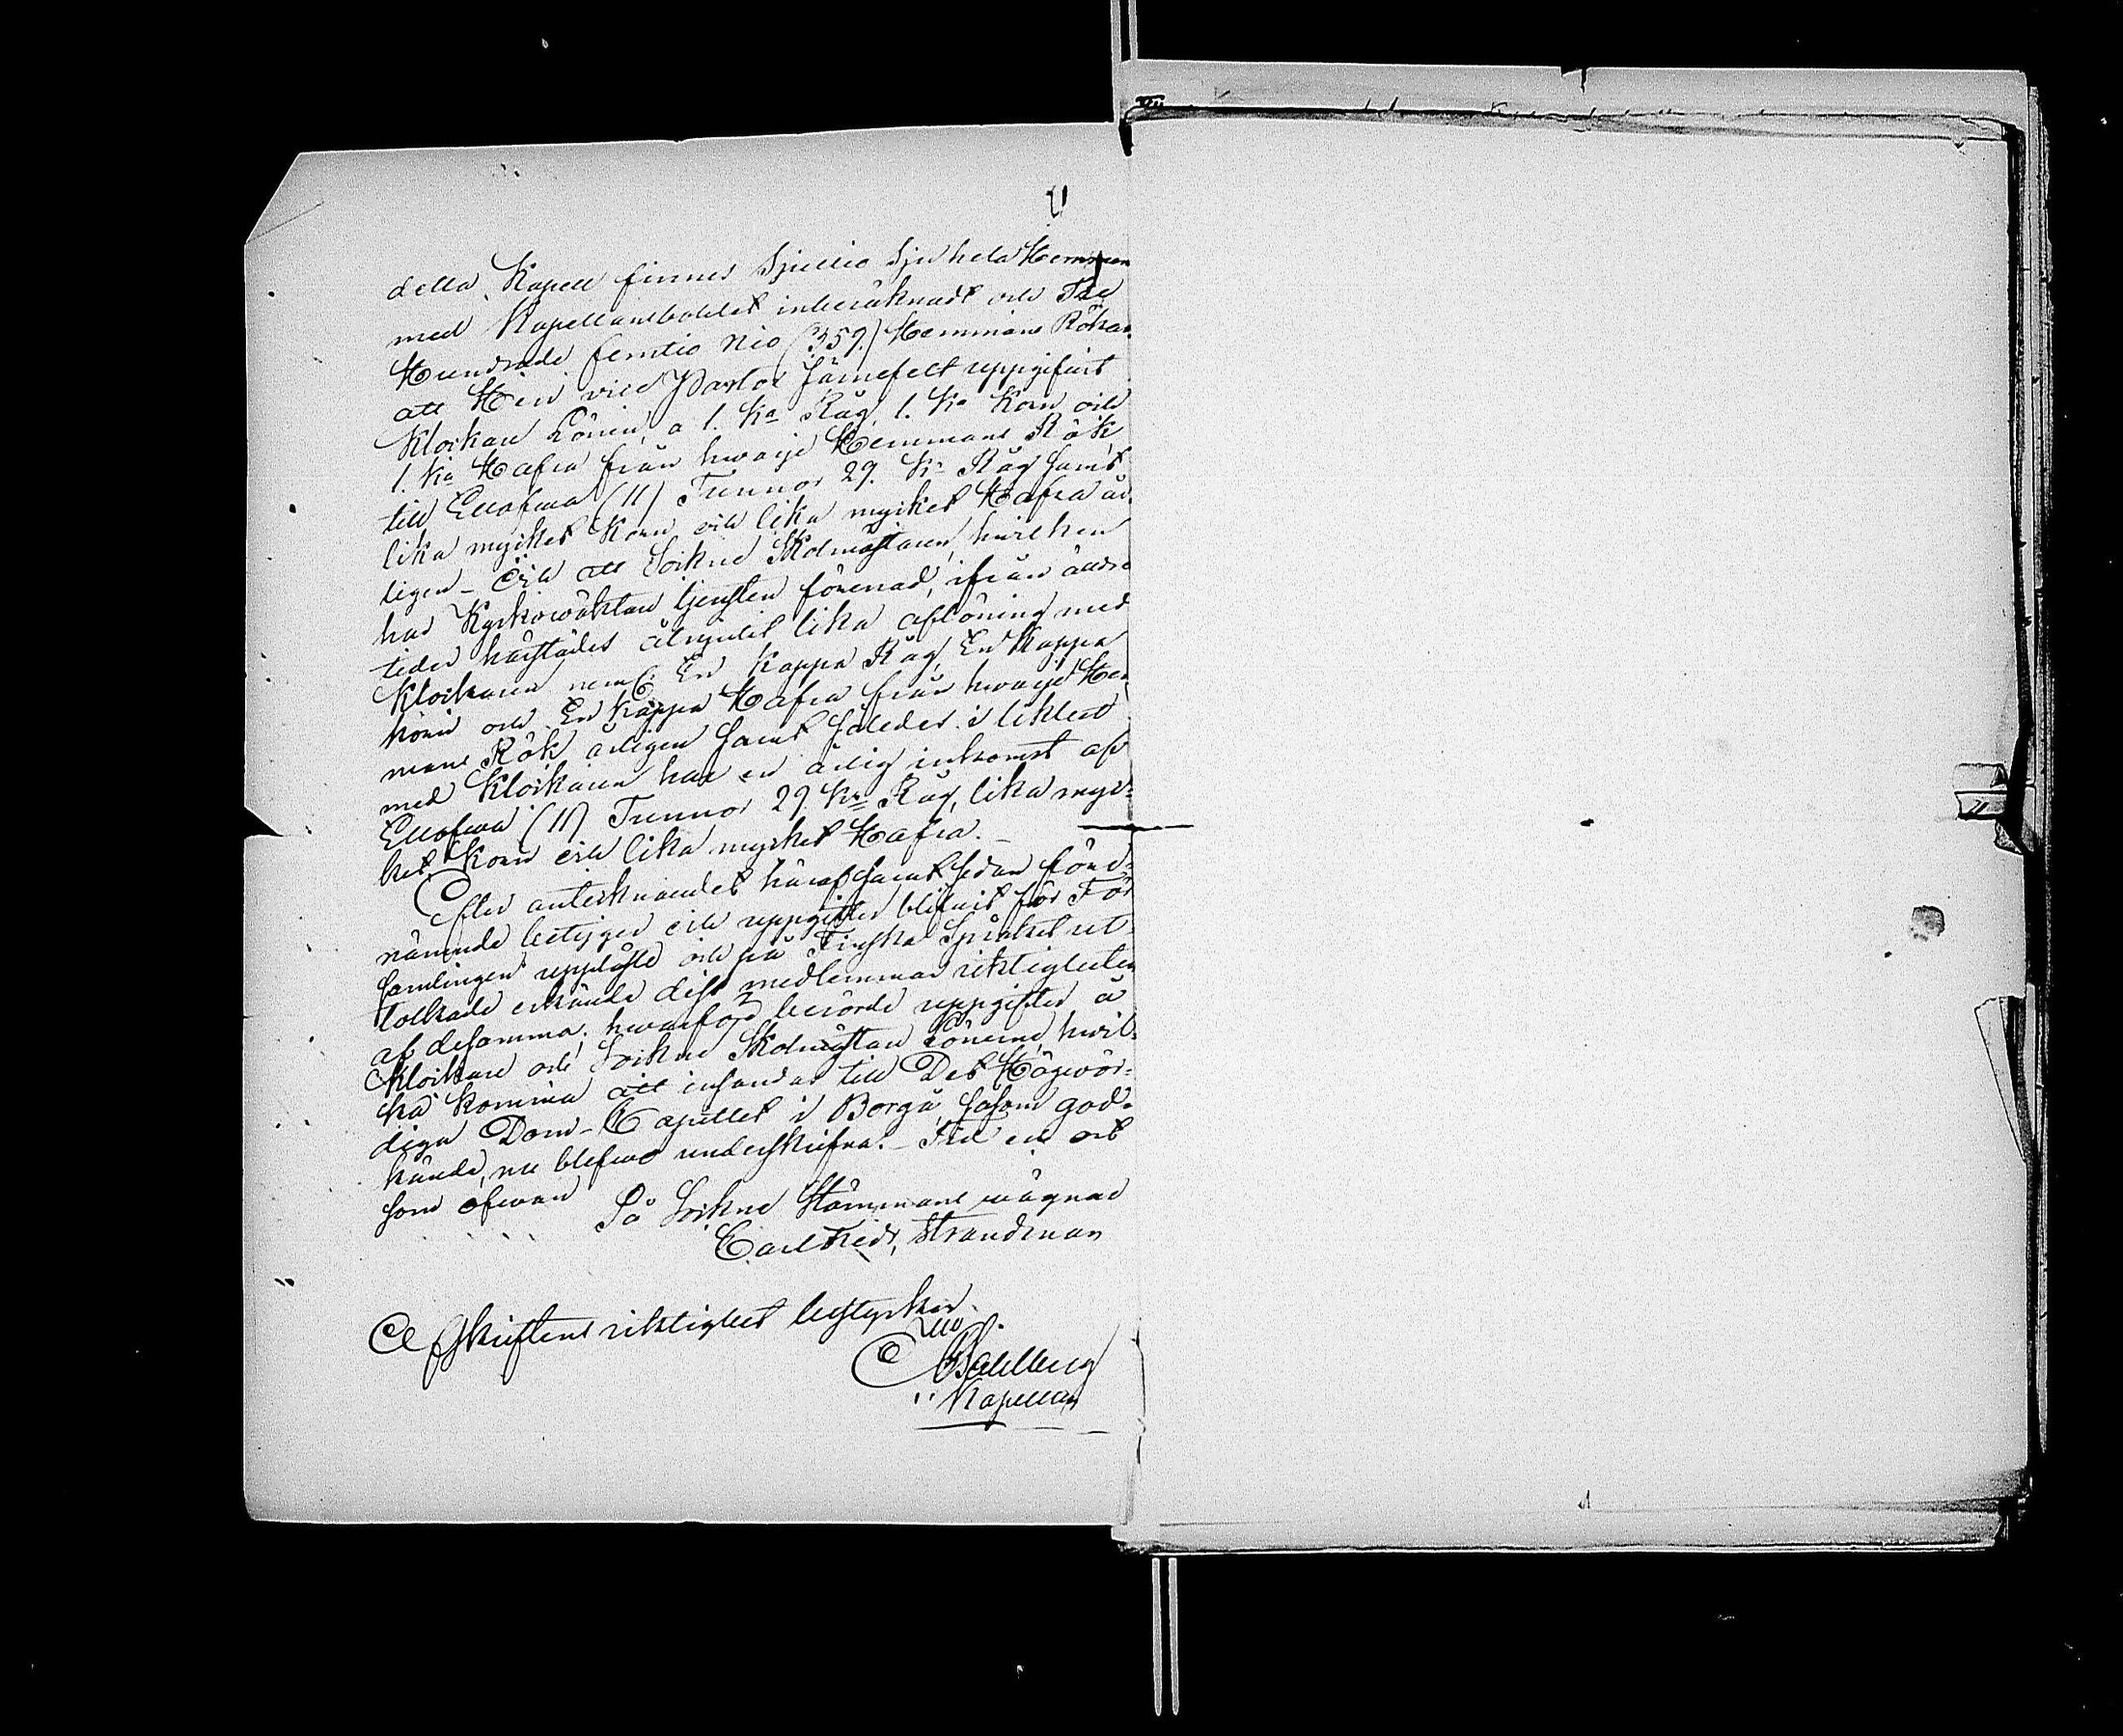 detta Kapell finnes Sjuttio Sju hela Hemman
med Kapellansbohlet inberäknadt och Tre
Hundrade femtio Nio (359.) Hemmans Rökar
att Herr vice Pastor Järnefelt uppgifvit
Klockare Lönen, a 1. Ka Råg, 1. Ka Korn och
1. Ka Hafra från hwarje Hemmans Rök
till Ellofwa (11) Tunnor 29. Kr Råg samt
lika mycket Korn och lika mycket Hafra år-
ligen - Och att Sockne Skolmästaren, hwilken
har Kyrkowäktare tjensten förenad, ifrån äldre
tider härstädes åtnjutit lika aflöning med
Klockaren neml: En Kappa Råg, En Kappa
korn och En Kappa Hafra från hwarje Hem-
mans Rök årligen samt således i likhet
med Klockaren har en årlig inkomst af
Ellofwa (11) Tunnor 29 Kr Råg, lika myc-
ket Korn och lika mycket Hafra. -
Efter antecknandet häraf samt sedan före-
nämnde betyger och uppgifter blifwit för För
samlingen uppläste och på Finska Språket ut-
tolkade erkände dess medlemmar riktigheten
af desamma; hwarföre berörde uppgifter å
Klockare och Sockne Skolmästare Lönerne, hwil-
ka komma att insändas till Det Högwör-
diga Dom-Capitlet i Borgå, såsom god-
kände, nu blefwo underskrifna. - Tid och ort
som ofwan
På Sockne Stämmans wägnar
Carl Fredr, Strandman
Afskriftens riktighet bestyrker
Kapellan